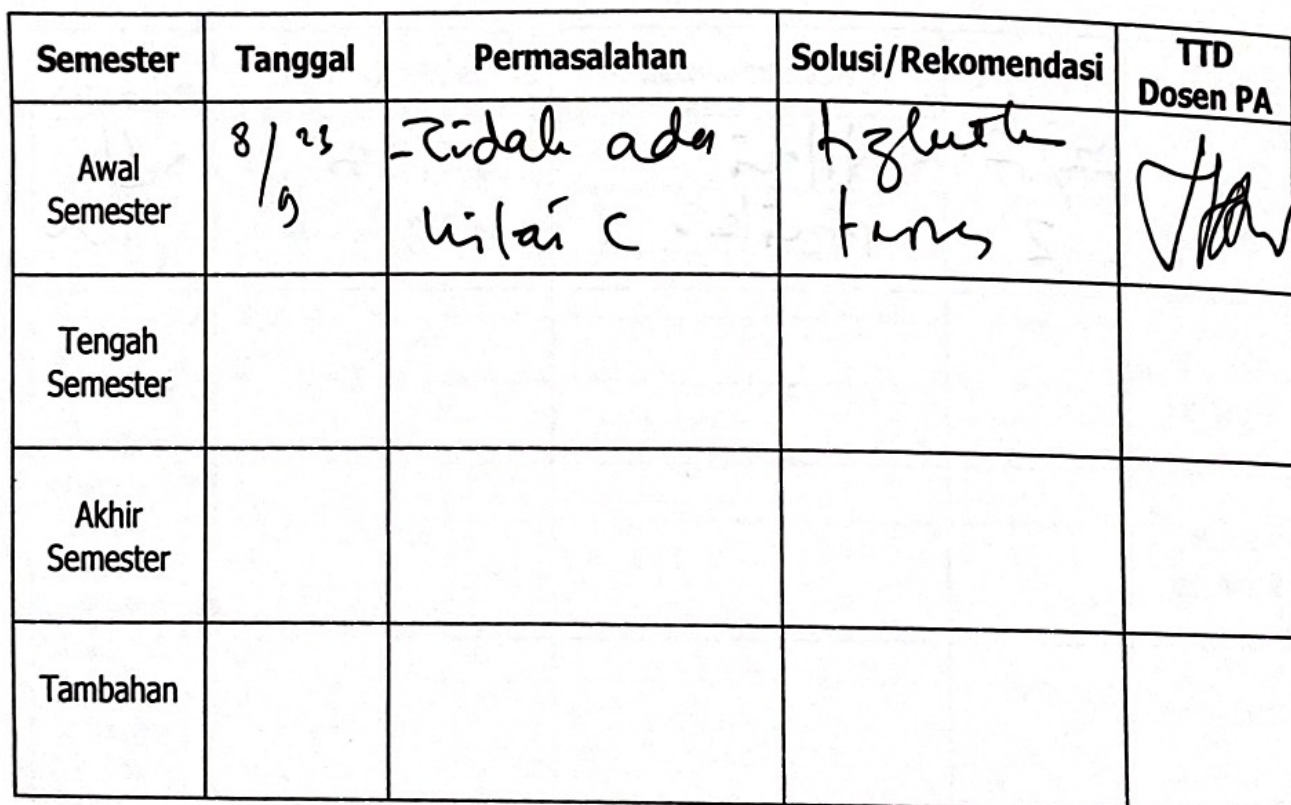 Semester Tanggal Permasalahan Solusi/Rekomendasi TTD
Dosen PA
Awal
Semester
8/23
9
-Tidak ada
nilai C
terus
Tengah
Semester
Akhir
Semester
Tambahan